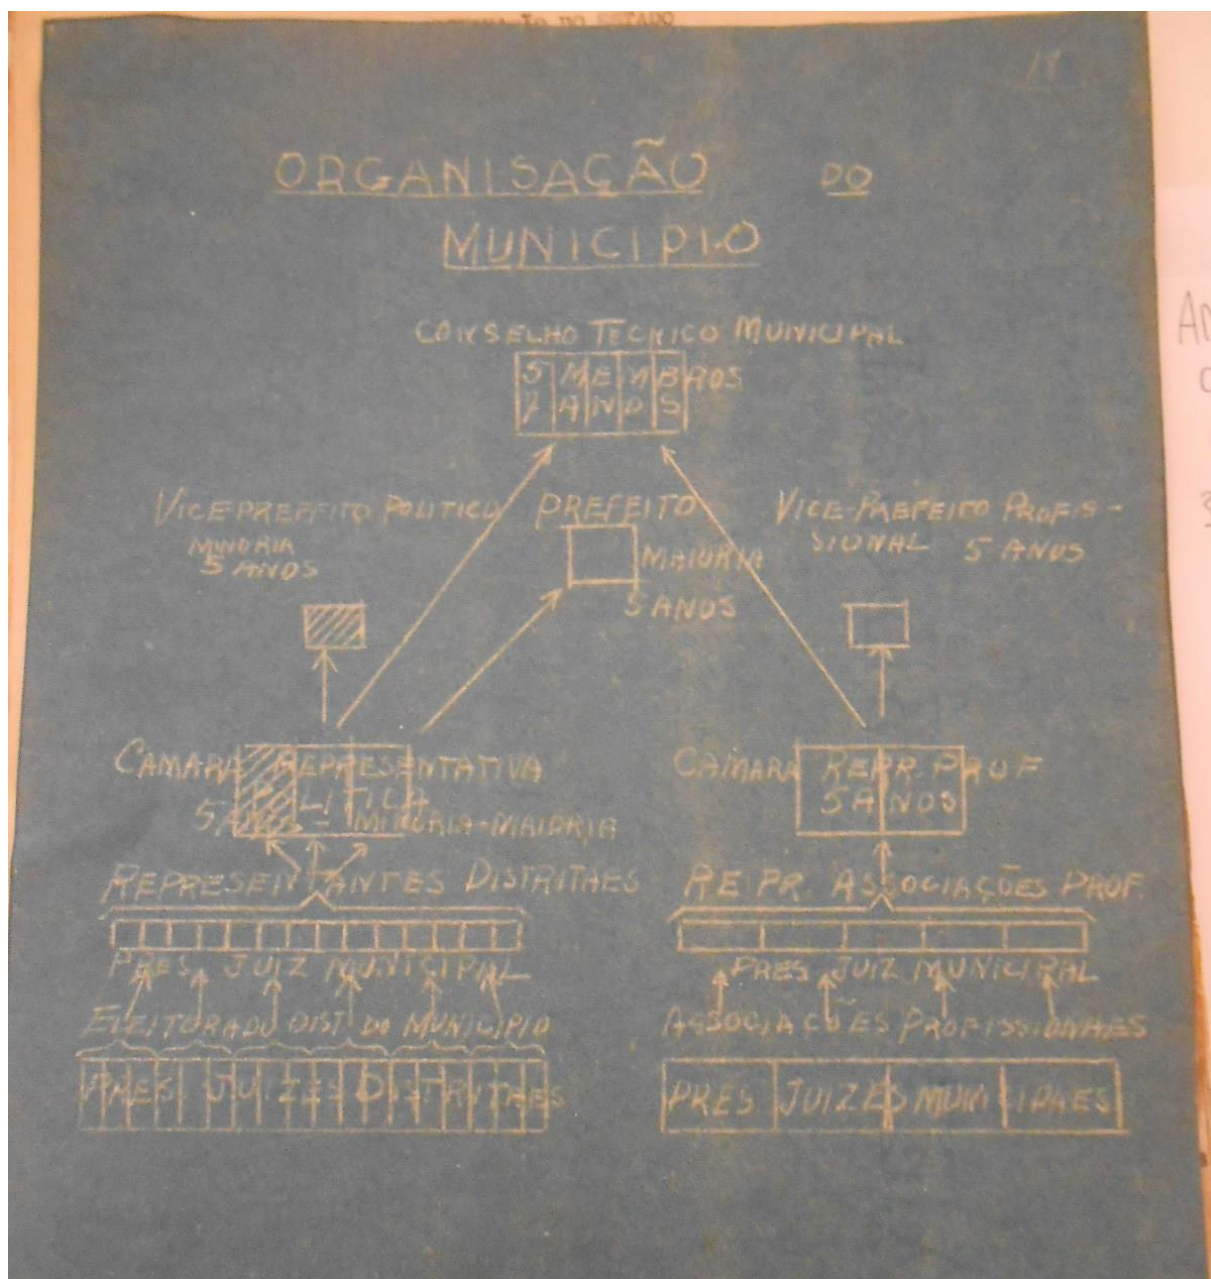 DO ESTADO
18
ORGANISAÇÃO DO
MUNICIPIO
CONSELHO TECNICO MUNICIPAL
5 MEMBROS
7 ANOS
VICE-PREFEITO POLITICO
MINORIA
5 ANOS
PREFEITO
MAIORIA
5 ANOS
VICE-PREFEITO PROFIS-
SIONAL 5 ANOS
CAMARA REPRESENTATIVA
POLITICA
5 ANOS - MINORIA-MAIORIA
CAMARA REPR. PROF.
5 ANOS
REPRESENTANTES DISTRITAES
PRES. JUIZ MUNICIPAL
ELEITORADO DIST. DO MUNICIPIO
PRES. JUIZES DISTRITAES
REPR. ASSOCIAÇÕES PROF.
PRES. JUIZ MUNICIPAL
ASSOCIAÇÕES PROFISSIONAES
PRES. JUIZES MUNICIPAES